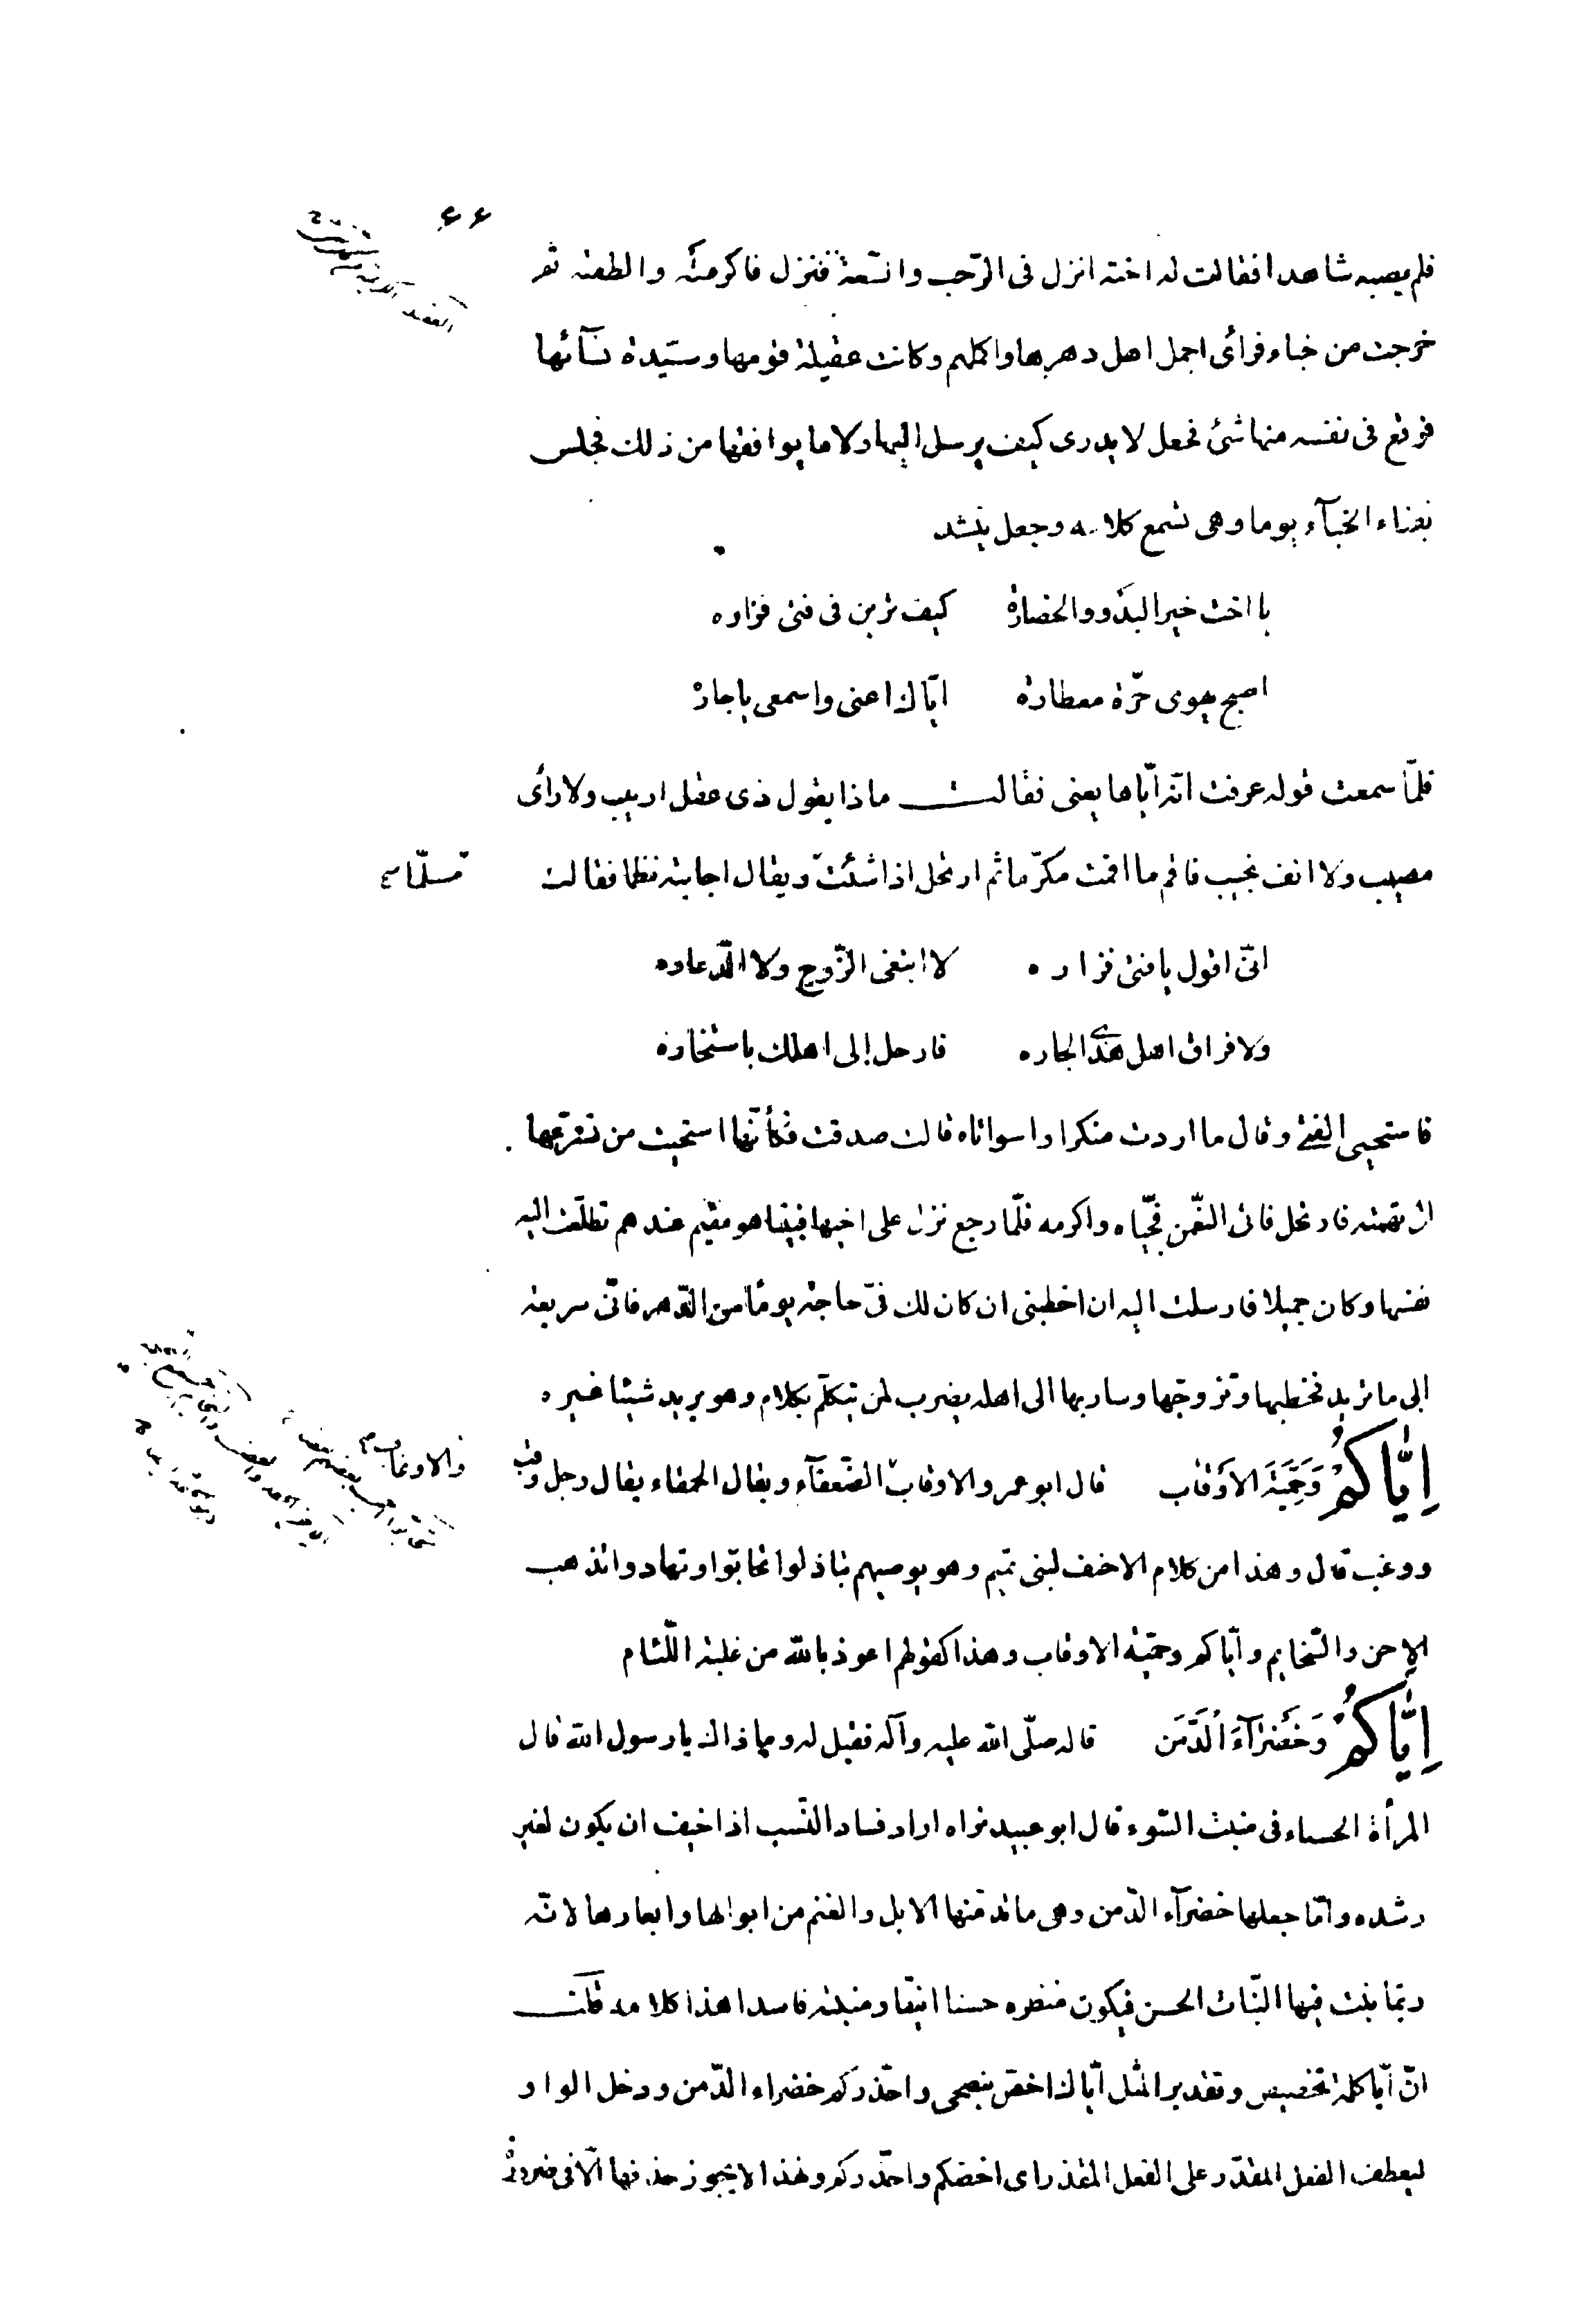 ۶۶
فلم يصبه شاهدا فقالت له اخته انزل فى الرّحب والسّعة فنزل فاكرمته والطفته ثم
خرجت من خباء فرأى اجمل اهل دهرها واكملهم وكانت عقيلة قومها وسيّدة نسآئها
فوقع فى نفسه منها شئ فجعل لا يدرى كيف يرسل اليها ولا ما يوافقها من ذلك فجلس
بفناء الخبآء يوما وهى تسمع كلامه وجعل ينشد
يا اخت خير البدو والحضارة كيف ترين فى فتى فزاره
اصبح يهوى حرّة معطارة ايّاك اعنى واسمعى يا جارة
فلمّا سمعت قوله عرفت انّه ايّاها يعنى فقالت ماذا يقول ذى عقل اريب ولا رأى
مصيب ولا انف نجيب فاقم ما اقمت مكرّما ثم ارتحل اذا شئت ويقال اجابته نظما فقالت
مسلّما
انّى اقول يا فتى فزاره لا ابتغى الزّوج ولا الدّعاره
ولا فراق اهل هذى الجاره فارحل إلى اهلك باستخاره
فاستحيى الفتى وقال ما اردت منكرا واسواتاه قالت صدقت فكأنّها استحيت من تسرّعها
الى تهمته فارتحل فاتى النعمن فحبّاه واكرمه فلمّا رجع نزل على اخيها فبينا هو مقيم عندهم تطلّعت اليه
نفسها وكان جميلا فارسلت اليه ان اخطبنى ان كان لك فىّ حاجة يوما من الدّهر فانّى سريعة
الى ما تريد فخطبها وتزوجها وسار بها الى اهله يضرب لمن يتكلّم بكلام وهو يريد شيئا غيره
اِيَّاكُمْ وَحَمِيَّةَ الأَوْقَابِ قال ابو عمرو الاوقاب الضّعفآء ويقال الحمقاء يقال رجل وقب
والاوغاب
ووغب قال وهذا من كلام الاحنف لبنى تميم وهو يوصيهم تباذلوا تحابّوا وتهادوا تذهب
الإحن والسّخايم وايّاكم وحميّة الاوقاب وهذا كقولهم اعوذ بالله من غلبة اللّئام
اِيَّاكُمْ وَخَضْرَآءَ الدِّمَنِ قاله صلّى الله عليه وآله فقيل له وما ذاك يا رسول الله قال
المرأة الحسناء فى منبت السّوء قال ابو عبيد نراه اراد فساد النّسب اذا خيف ان يكون لغير
رشده وانّما جعلها خضرآء الدّمن وهى ما تدمّنها الابل والغنم من ابوالها وابعارها لانّه
ربّما ينبت فيها النّبات الحسن فيكون منظره حسنا انيقا ومنبته فاسدا هذا كلامه قلت
انّ ايّا كلمة تخصيص وتقدير المثل ايّاك اخصّ بنصحى واحذّركم خضراء الدّمن ودخل الواو
ليعطف الفعل المقدّر على الفعل المقدّر اى اخصّكم واحذّركم ولهذا لا يجوز حذفها الّا فى ضرورة